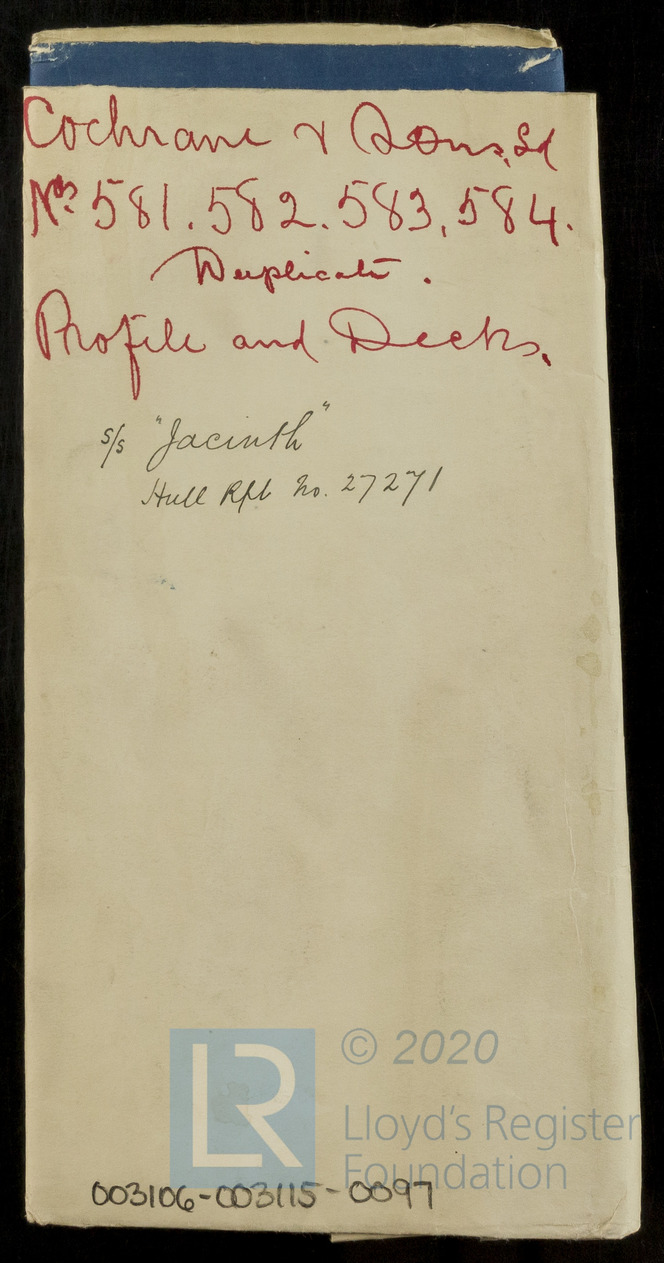 Cochrane & Sons, Ld
Nos. 581. 582. 583, 584.
Duplicate.
Profile and Decks.
s/s "Jacinth"
Hull Rpt No. 27271
LR
© 2020
Lloyd's Register
Foundation
003106-003115-0097